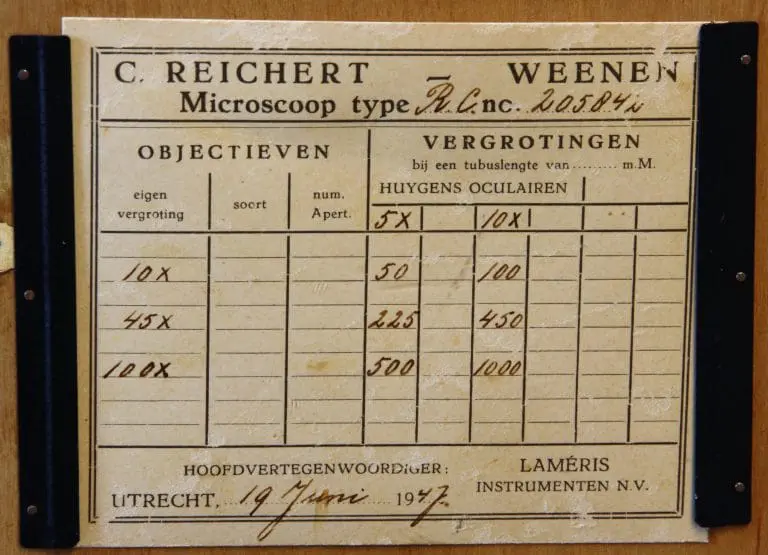 C. REICHERT – WEENEN
Microscoop type R.C. nc. 205842
OBJECTIEVEN
VERGROTINGEN
bij een tubuslengte van ......... m.M.
eigen vergroting
soort
num. Apert.
HUYGENS OCULAIREN
5X 10X
10X 50 100
45X 225 450
100X 500 1000
HOOFDVERTEGENWOORDIGER: LAMÉRIS
UTRECHT, 19 Juni 1947. INSTRUMENTEN N.V.